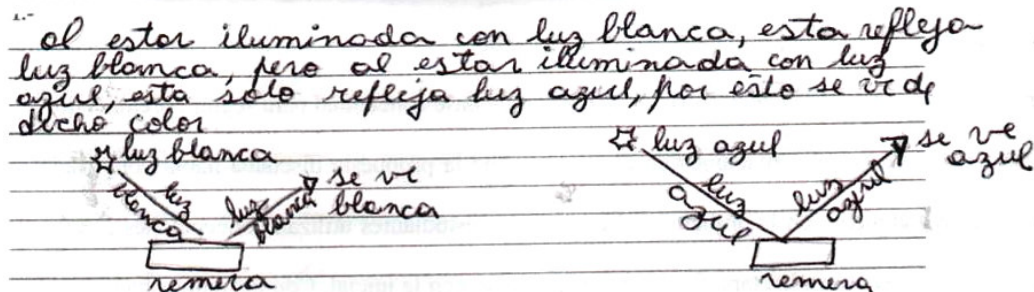 1.-
al estar iluminada con luz blanca, esta refleja
luz blanca, pero al estar iluminada con luz
azul, esta solo refleja luz azul, por esto se ve de
dicho color
luz blanca
luz blanca
luz blanca
se ve blanca
remera
luz azul
luz azul
luz azul
se ve azul
remera